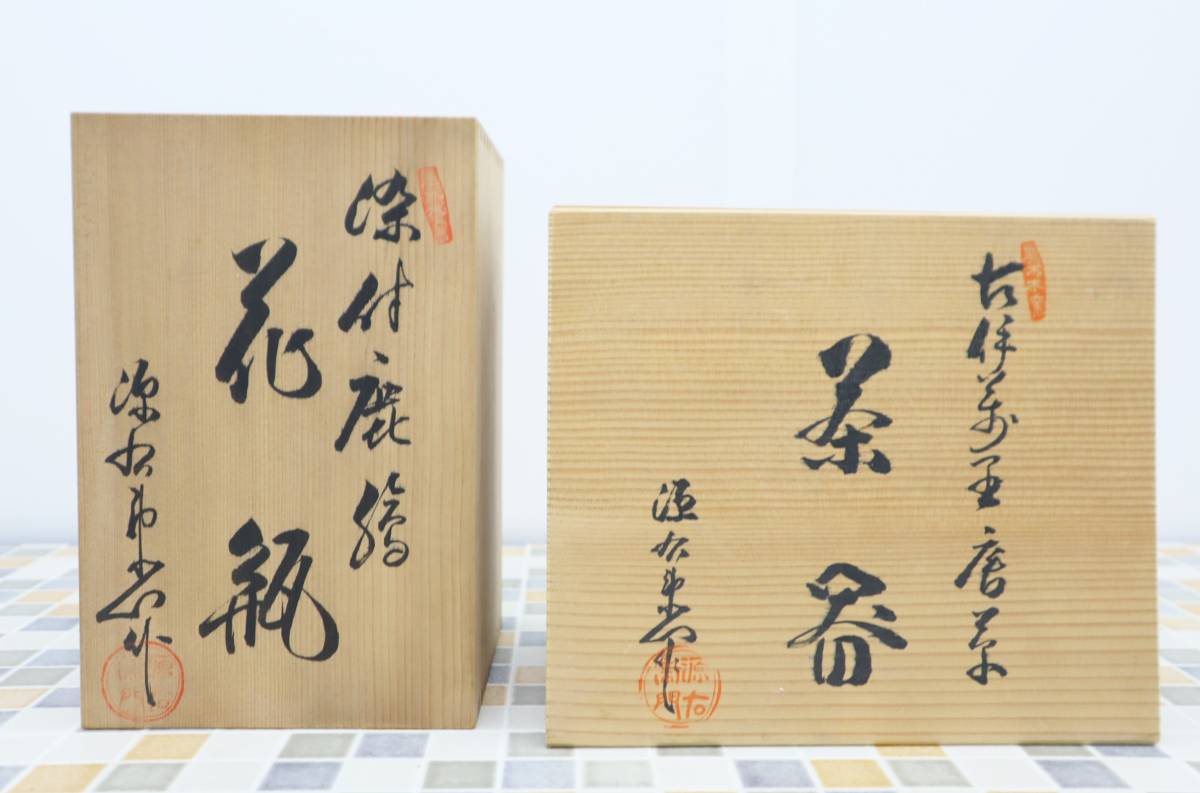 染付鹿絵
花瓶
源右衛門作
古伊萬里唐草
茶器
源右衛門作
源右衛門